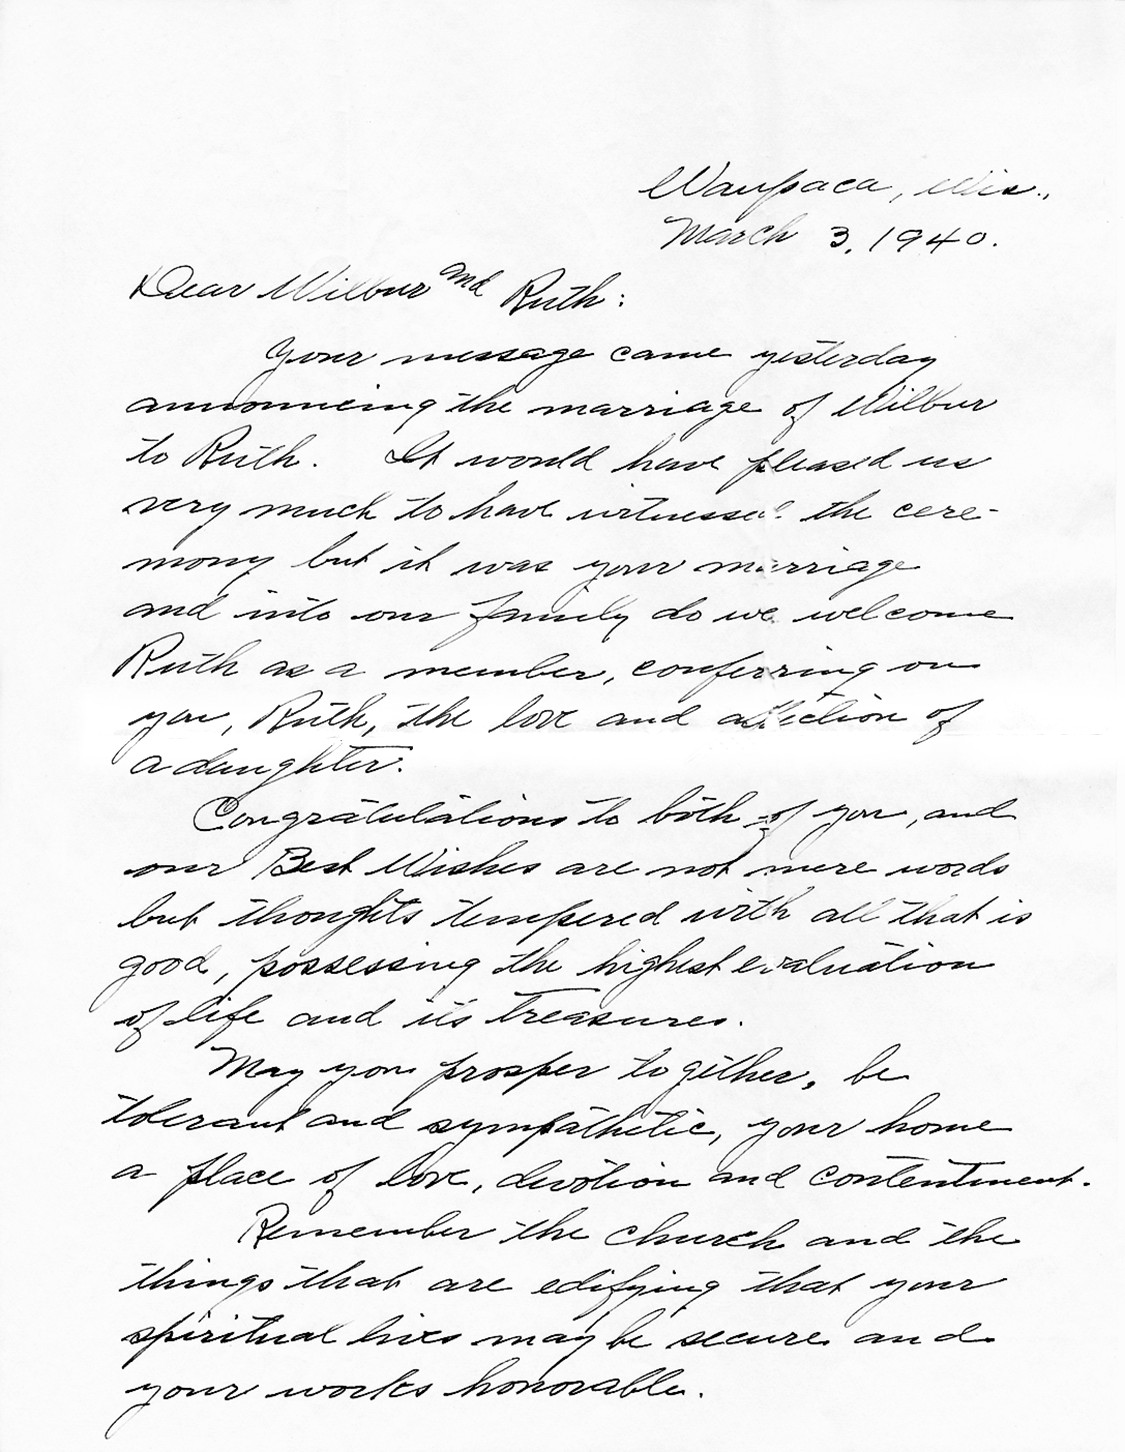 Waupaca, Wis.,
March 3, 1940.
Dear Wilbur and Ruth:
Your message came yesterday
announcing the marriage of Wilbur
to Ruth. It would have pleased us
very much to have witnessed the cere-
mony but it was your marriage
and into our family do we welcome
Ruth as a member, conferring on
you, Ruth, the love and affection of
a daughter.
Congratulations to both of you, and
our Best Wishes are not mere words
but thoughts tempered with all that is
good, possessing the highest evaluation
of life and its treasures.
May you prosper together, be
tolerant and sympathetic, your home
a place of love, devotion and contentment.
Remember the church and the
things that are edifying that your
spiritual lives may be secure and
your works honorable.